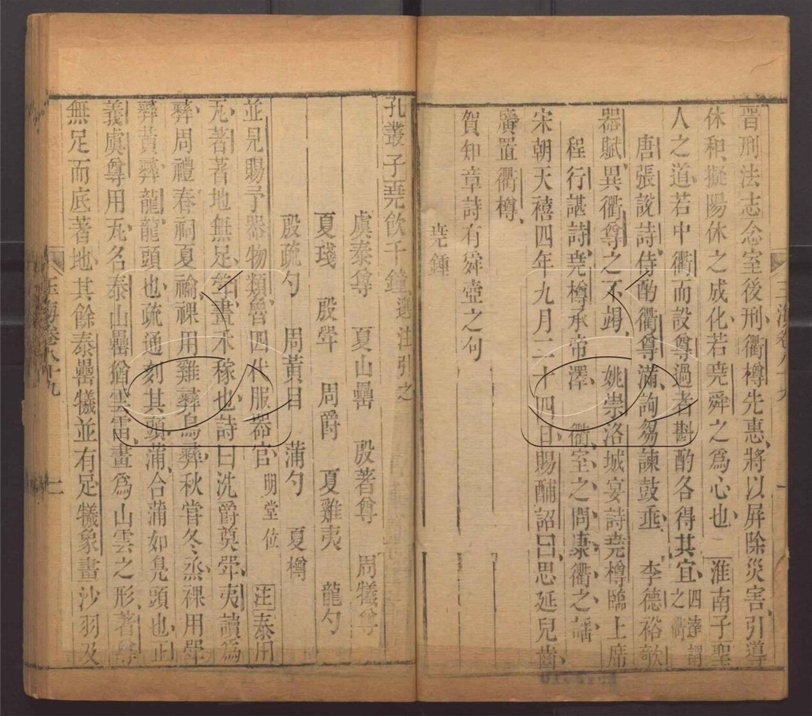 晉刑法志念室後刑衢樽先惠將以屏除災害引導
休和擬陽休之成化若堯舜之為心也 淮南子聖
人之道若中衢而設尊過者斟酌各得其宜四達謂之衢
唐張說詩侍酌衢尊滿詢芻諫鼓垂 李德裕欹
器賦異衢尊之不竭 姚崇洛城宴詩堯樽臨上席
程行諶詩堯樽承帝澤 衢室之問康衢之謠
宋朝天禧四年九月二十四日賜酺詔曰思延兒齒
廣置衢樽
賀知章詩有舜壺之句
堯鍾
孔叢子堯飲千鍾選注引之
虞泰尊 夏山罍 殷著尊 周犧尊
夏琖 殷斝 周爵 夏雞夷 龍勺
殷疏勺 周黃目 蒲勺 夏樽
並見賜予器物類魯四代服器官明堂位 注泰用
瓦著著地無足斝畫禾稼也詩曰洗爵奠斝夷讀為
彝周禮春祠夏禴祼用雞彝鳥彝秋嘗冬烝祼用斝
彝黃彝龍龍頭也疏通刻其頭蒲合蒲如鳧頭也正
義虞尊用瓦名泰山罍猶雲雷畫為山雲之形著尊
無足而底著地其餘泰罍犧並有足犧象畫沙羽及
玉海卷八十九